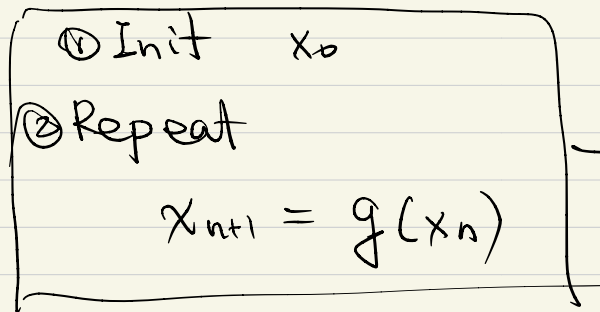 ① Init x₀
② Repeat
xₙ₊₁ = g(xₙ)